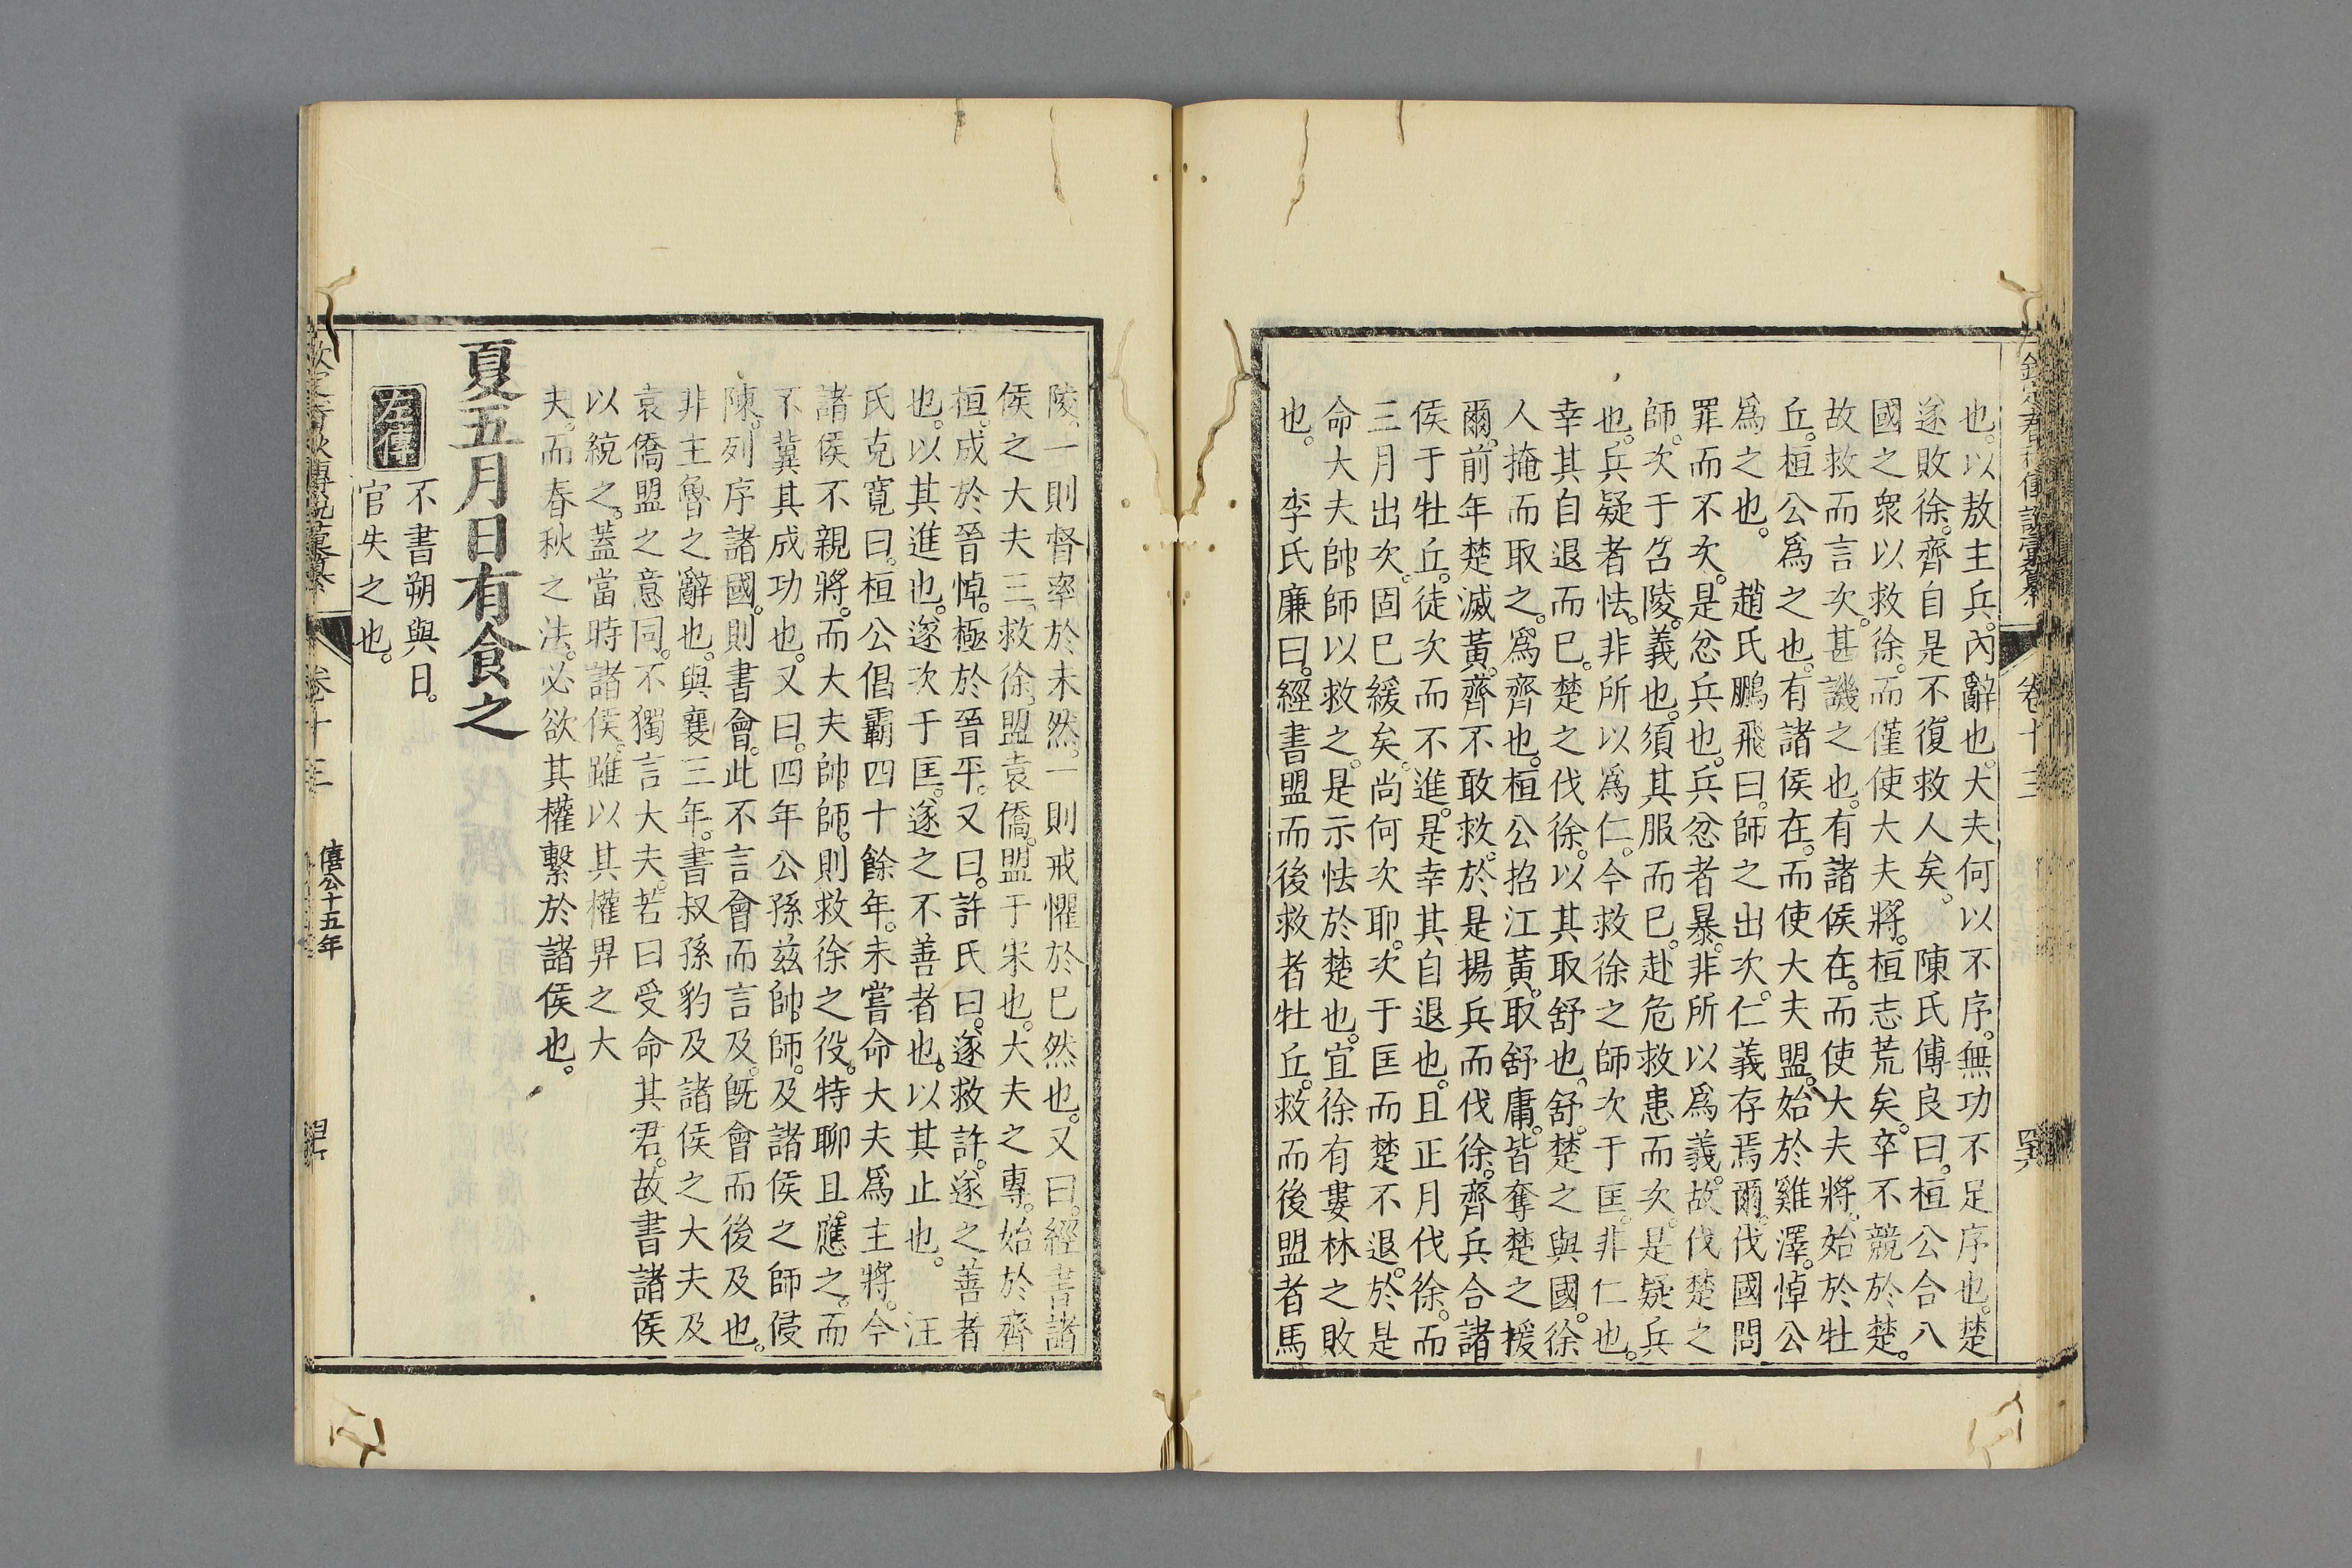 欽定春秋傳說彙纂 卷十三
也。以敖主兵。內辭也。大夫何以不序。無功不足序也。楚
遂敗徐。齊自是不復救人矣。 陳氏傅良曰。桓公合八
國之衆以救徐。而僅使大夫將。桓志荒矣。卒不競於楚。
故救而言次。甚譏之也。有諸侯在。而使大夫將。始於牡
丘。桓公爲之也。有諸侯在。而使大夫盟。始於雞澤。悼公
爲之也。 趙氏鵬飛曰。師之出次。仁義存焉爾。伐國問
罪而不次。是忿兵也。兵忿者暴。非所以爲義。故伐楚之
師。次于召陵。義也。須其服而巳。赴危救患而次。是疑兵
也。兵疑者怯。非所以爲仁。今救徐之師次于匡。非仁也。
幸其自退而巳。楚之伐徐。以其取舒也。舒。楚之與國。徐
人掩而取之。爲齊也。桓公招江黃。取舒庸。皆奪楚之援
爾。前年楚滅黃。齊不敢救。於是揚兵而伐徐。齊兵合諸
侯于牡丘。徒次而不進。是幸其自退也。且正月伐徐。而
三月出次。固巳緩矣。尚何次耶。次于匡而楚不退。於是
命大夫帥師以救之。是示怯於楚也。宜徐有婁林之敗
也。 李氏廉曰。經書盟而後救者牡丘。救而後盟者馬
陵。一則督率於未然。一則戒懼於巳然也。又曰。經書諸
侯之大夫三。救徐。盟袁僑。盟于宋也。大夫之專。始於齊
桓。成於晉悼。極於晉平。又曰。許氏曰。遂救許。遂之善者
也。以其進也。遂次于匡。遂之不善者也。以其止也。 汪
氏克寬曰。桓公倡霸四十餘年。未嘗命大夫爲主將。今
諸侯不親將。而大夫帥師。則救徐之役。特聊且應之。而
不冀其成功也。又曰。四年公孫兹帥師。及諸侯之師侵
陳。列序諸國。則書會。此不言會而言及。旣會而後及也。
非主魯之辭也。與襄三年。書叔孫豹及諸侯之大夫及
袁僑盟之意同。不獨言大夫。若曰受命其君。故書諸侯
以統之。蓋當時諸侯。雖以其權畀之大
夫。而春秋之法。必欲其權繫於諸侯也。
夏五月日有食之
左傳
不書朔與日。
官失之也。
卷十三 僖公十五年